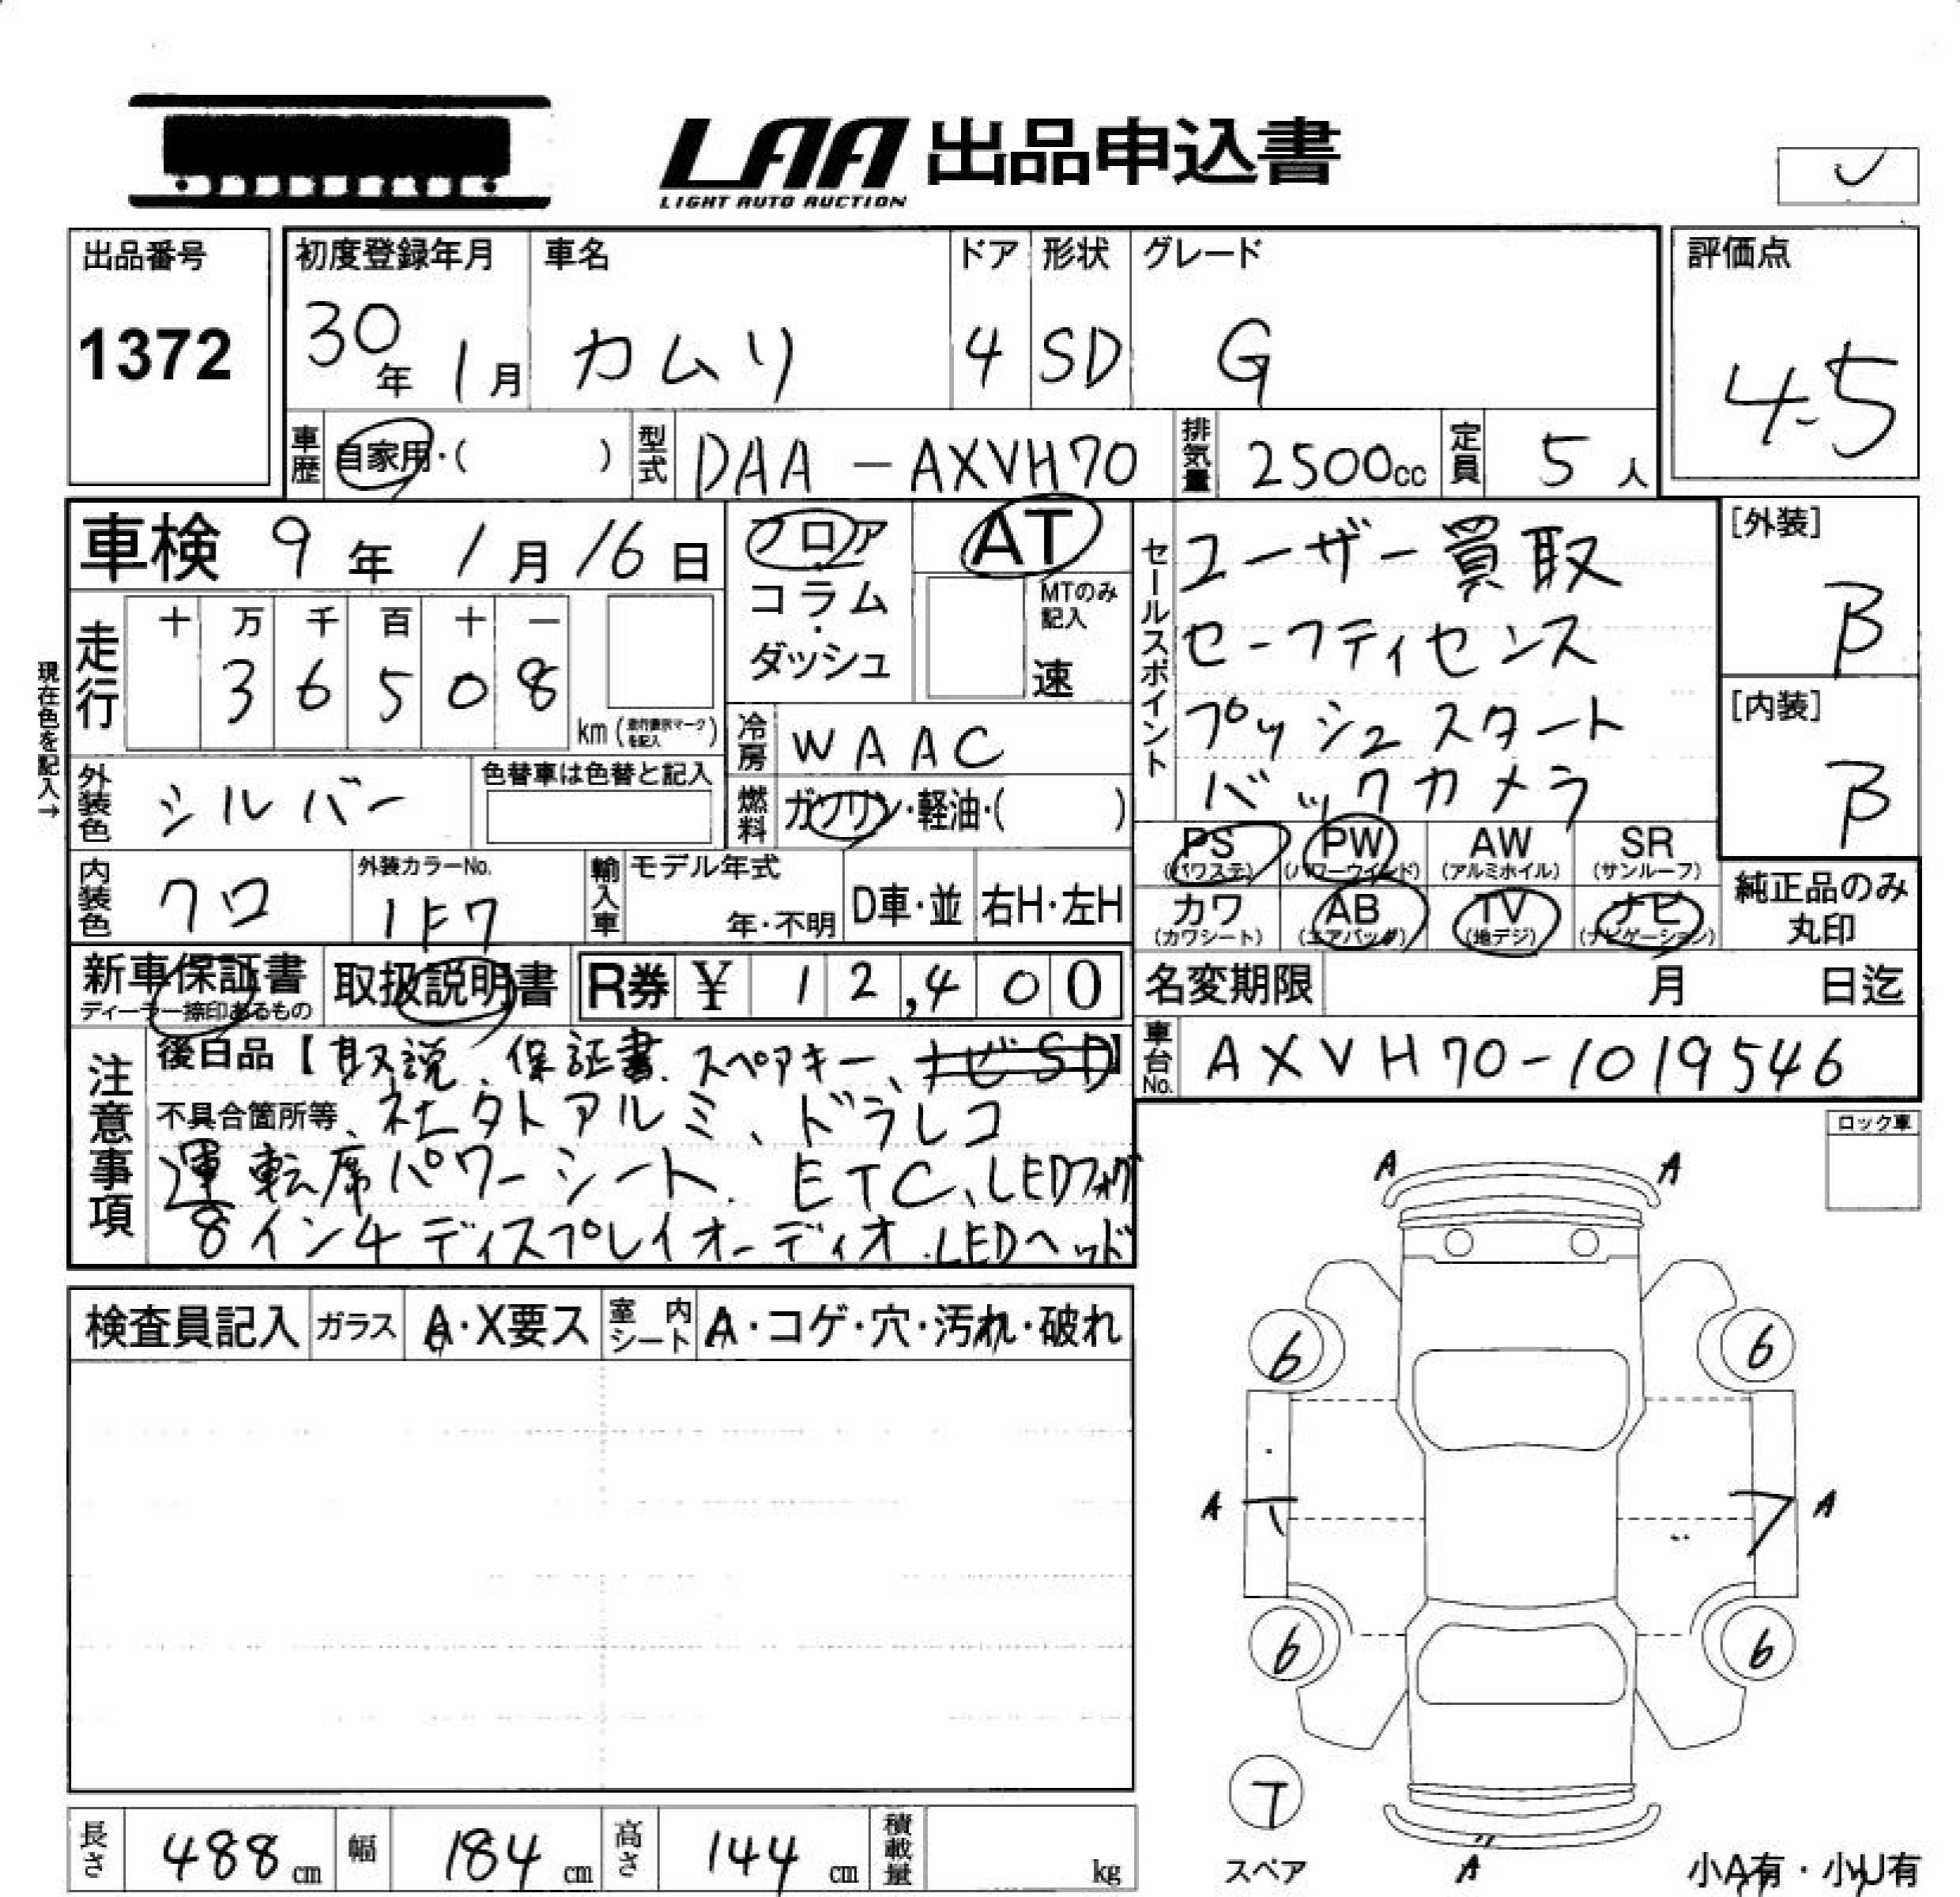 LAA 出品申込書
LIGHT AUTO AUCTION
出品番号
1372
初度登録年月
30年 1月
車名
カムリ
ドア
4
形状
SD
グレード
G
評価点
4.5
車歴 自家用・( )
型式 DAA-AXVH70
排気量 2500cc
定員 5人
車検 9年 1月 16日
フロア・コラム・ダッシュ
AT
MTのみ記入
速
セールスポイント
ユーザー買取
セーフティセンス
プッシュスタート
バックカメラ
[外装]
B
[内装]
B
現在色を記入→
走行
十 万 千 百 十 一
3 6 5 0 8
km (走行表示マークを記入)
冷房 WAAC
外装色 シルバー
色替車は色替と記入
燃料 ガソリン・軽油・( )
内装色 クロ
外装カラーNo.
1F7
輸入車 モデル年式
年・不明
D車・並
右H・左H
PS (パワステ)
PW (パワーウインド)
AW (アルミホイル)
SR (サンルーフ)
カワ (カワシート)
AB (エアバッグ)
TV (地デジ)
ナビ (ナビゲーション)
純正品のみ丸印
新車保証書
ディーラー捺印あるもの
取扱説明書
R券 ¥ 12,400
名変期限 月 日迄
車台No. AXVH70-1019546
注意事項
後日品【取説、保証書、スペアキー、ナビSD】
不具合箇所等、社外アルミ、ドラレコ
運転席パワーシート、ETC、LEDフォグ
8インチディスプレイオーディオ、LEDヘッド
ロック車
検査員記入
ガラス A・X要ス
室内シート A・コゲ・穴・汚れ・破れ
A A
6 6
A A
6 6
T
スペア
A
小A有・小U有
長さ 488cm
幅 184cm
高さ 144cm
積載量 kg